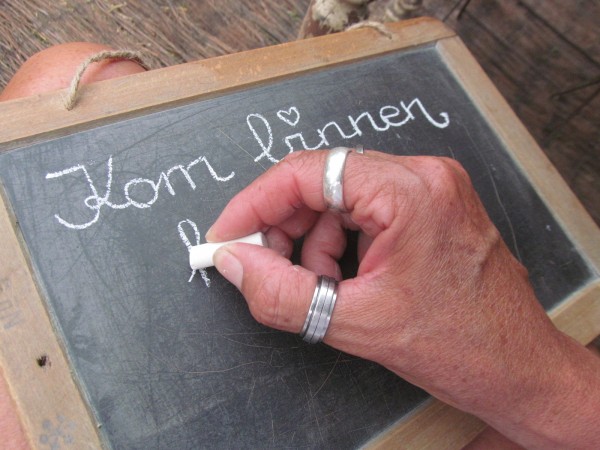 Kom binnen